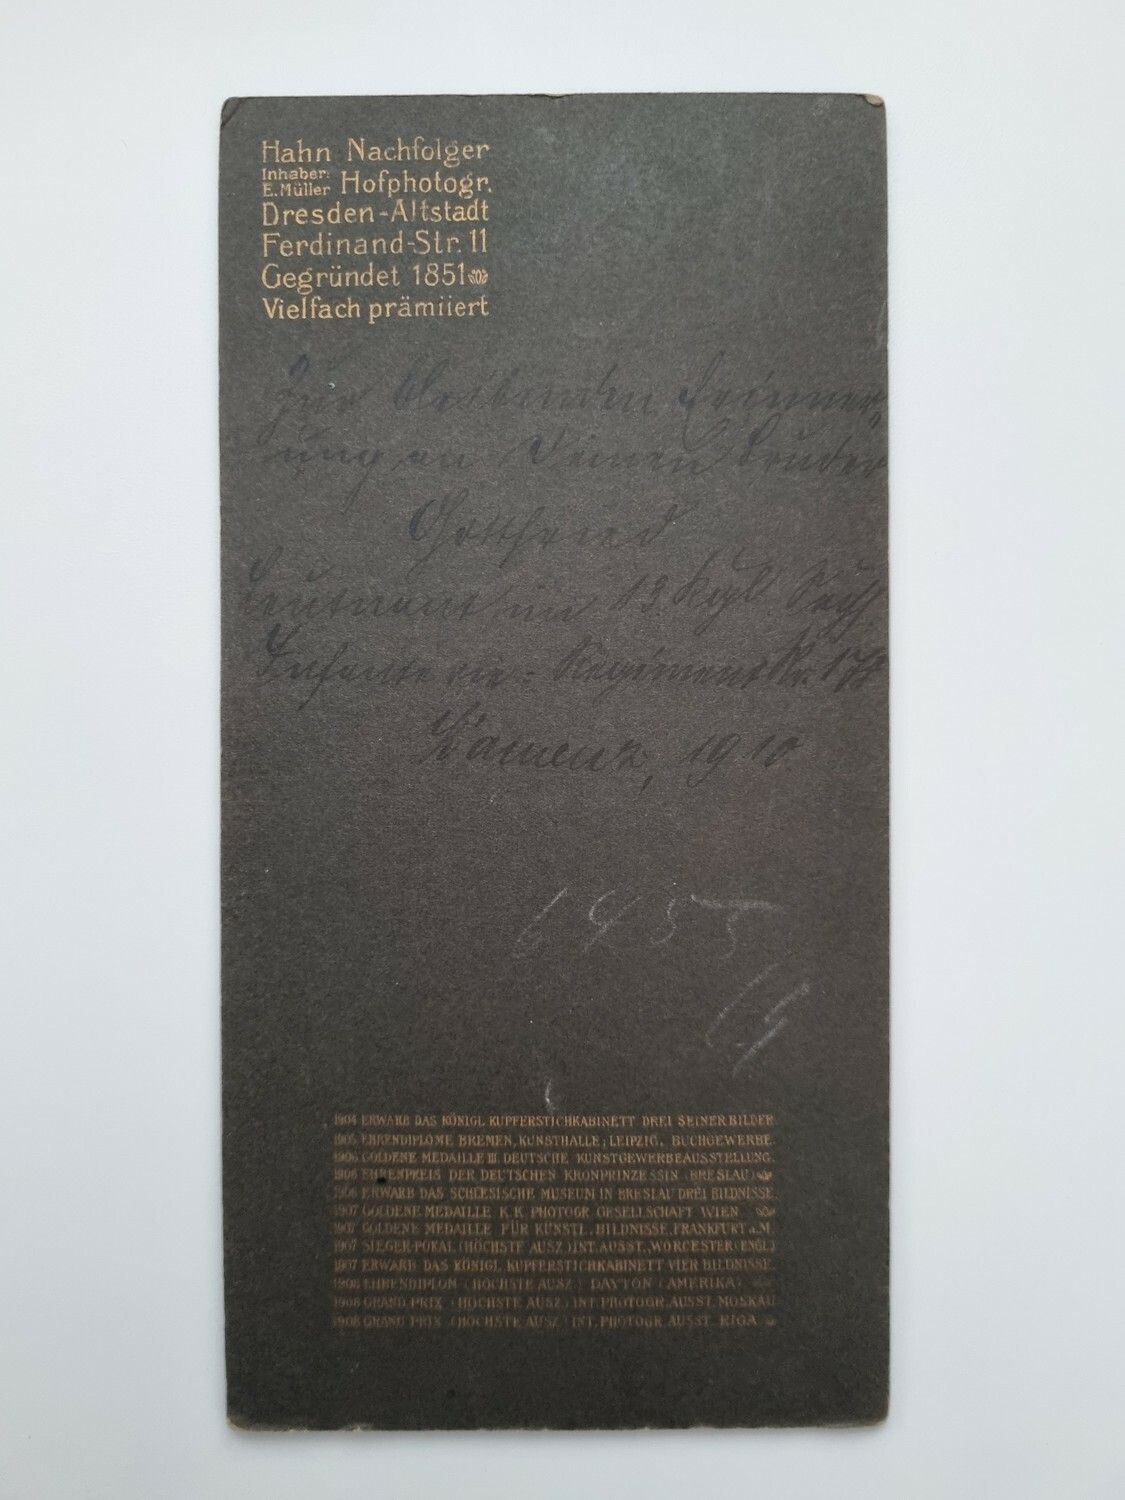 Hahn Nachfolger
Inhaber:
E. Müller Hofphotogr.
Dresden-Altstadt
Ferdinand-Str. 11
Gegründet 1851
Vielfach prämiiert
Zur bleibenden Erinner-
ung an Deinen Bruder
Gottfried
Leutnant im 13. Kgl. Sächs.
Infanterie-Regiment Nr. 178
Kamenz, 1910.
6455
1904 ERWARB DAS KÖNIGL KUPFERSTICHKABINETT DREI SEINER BILDER
1905 EHRENDIPLOME BREMEN, KUNSTHALLE; LEIPZIG, BUCHGEWERBE.
1906 GOLDENE MEDAILLE III. DEUTSCHE KUNSTGEWERBEAUSSTELLUNG.
1906 EHRENPREIS DER DEUTSCHEN KRONPRINZESSIN (BRESLAU)
1906 ERWARB DAS SCHLESISCHE MUSEUM IN BRESLAU DREI BILDNISSE.
1907 GOLDENE MEDAILLE K. K. PHOTOGR GESELLSCHAFT WIEN
1907 GOLDENE MEDAILLE FÜR KÜNSTL. BILDNISSE, FRANKFURT a.M.
1907 SIEGER-POKAL (HÖCHSTE AUSZ.) INT. AUSST., WORCESTER (ENGL.)
1907 ERWARB DAS KÖNIGL KUPFERSTICHKABINETT VIER BILDNISSE.
1908 EHRENDIPLOM (HÖCHSTE AUSZ.) DAYTON (AMERIKA)
1908 GRAND PRIX (HÖCHSTE AUSZ.) INT. PHOTOGR. AUSST. MOSKAU
1908 GRAND PRIX (HÖCHSTE AUSZ.) INT. PHOTOGR. AUSST. RIGA